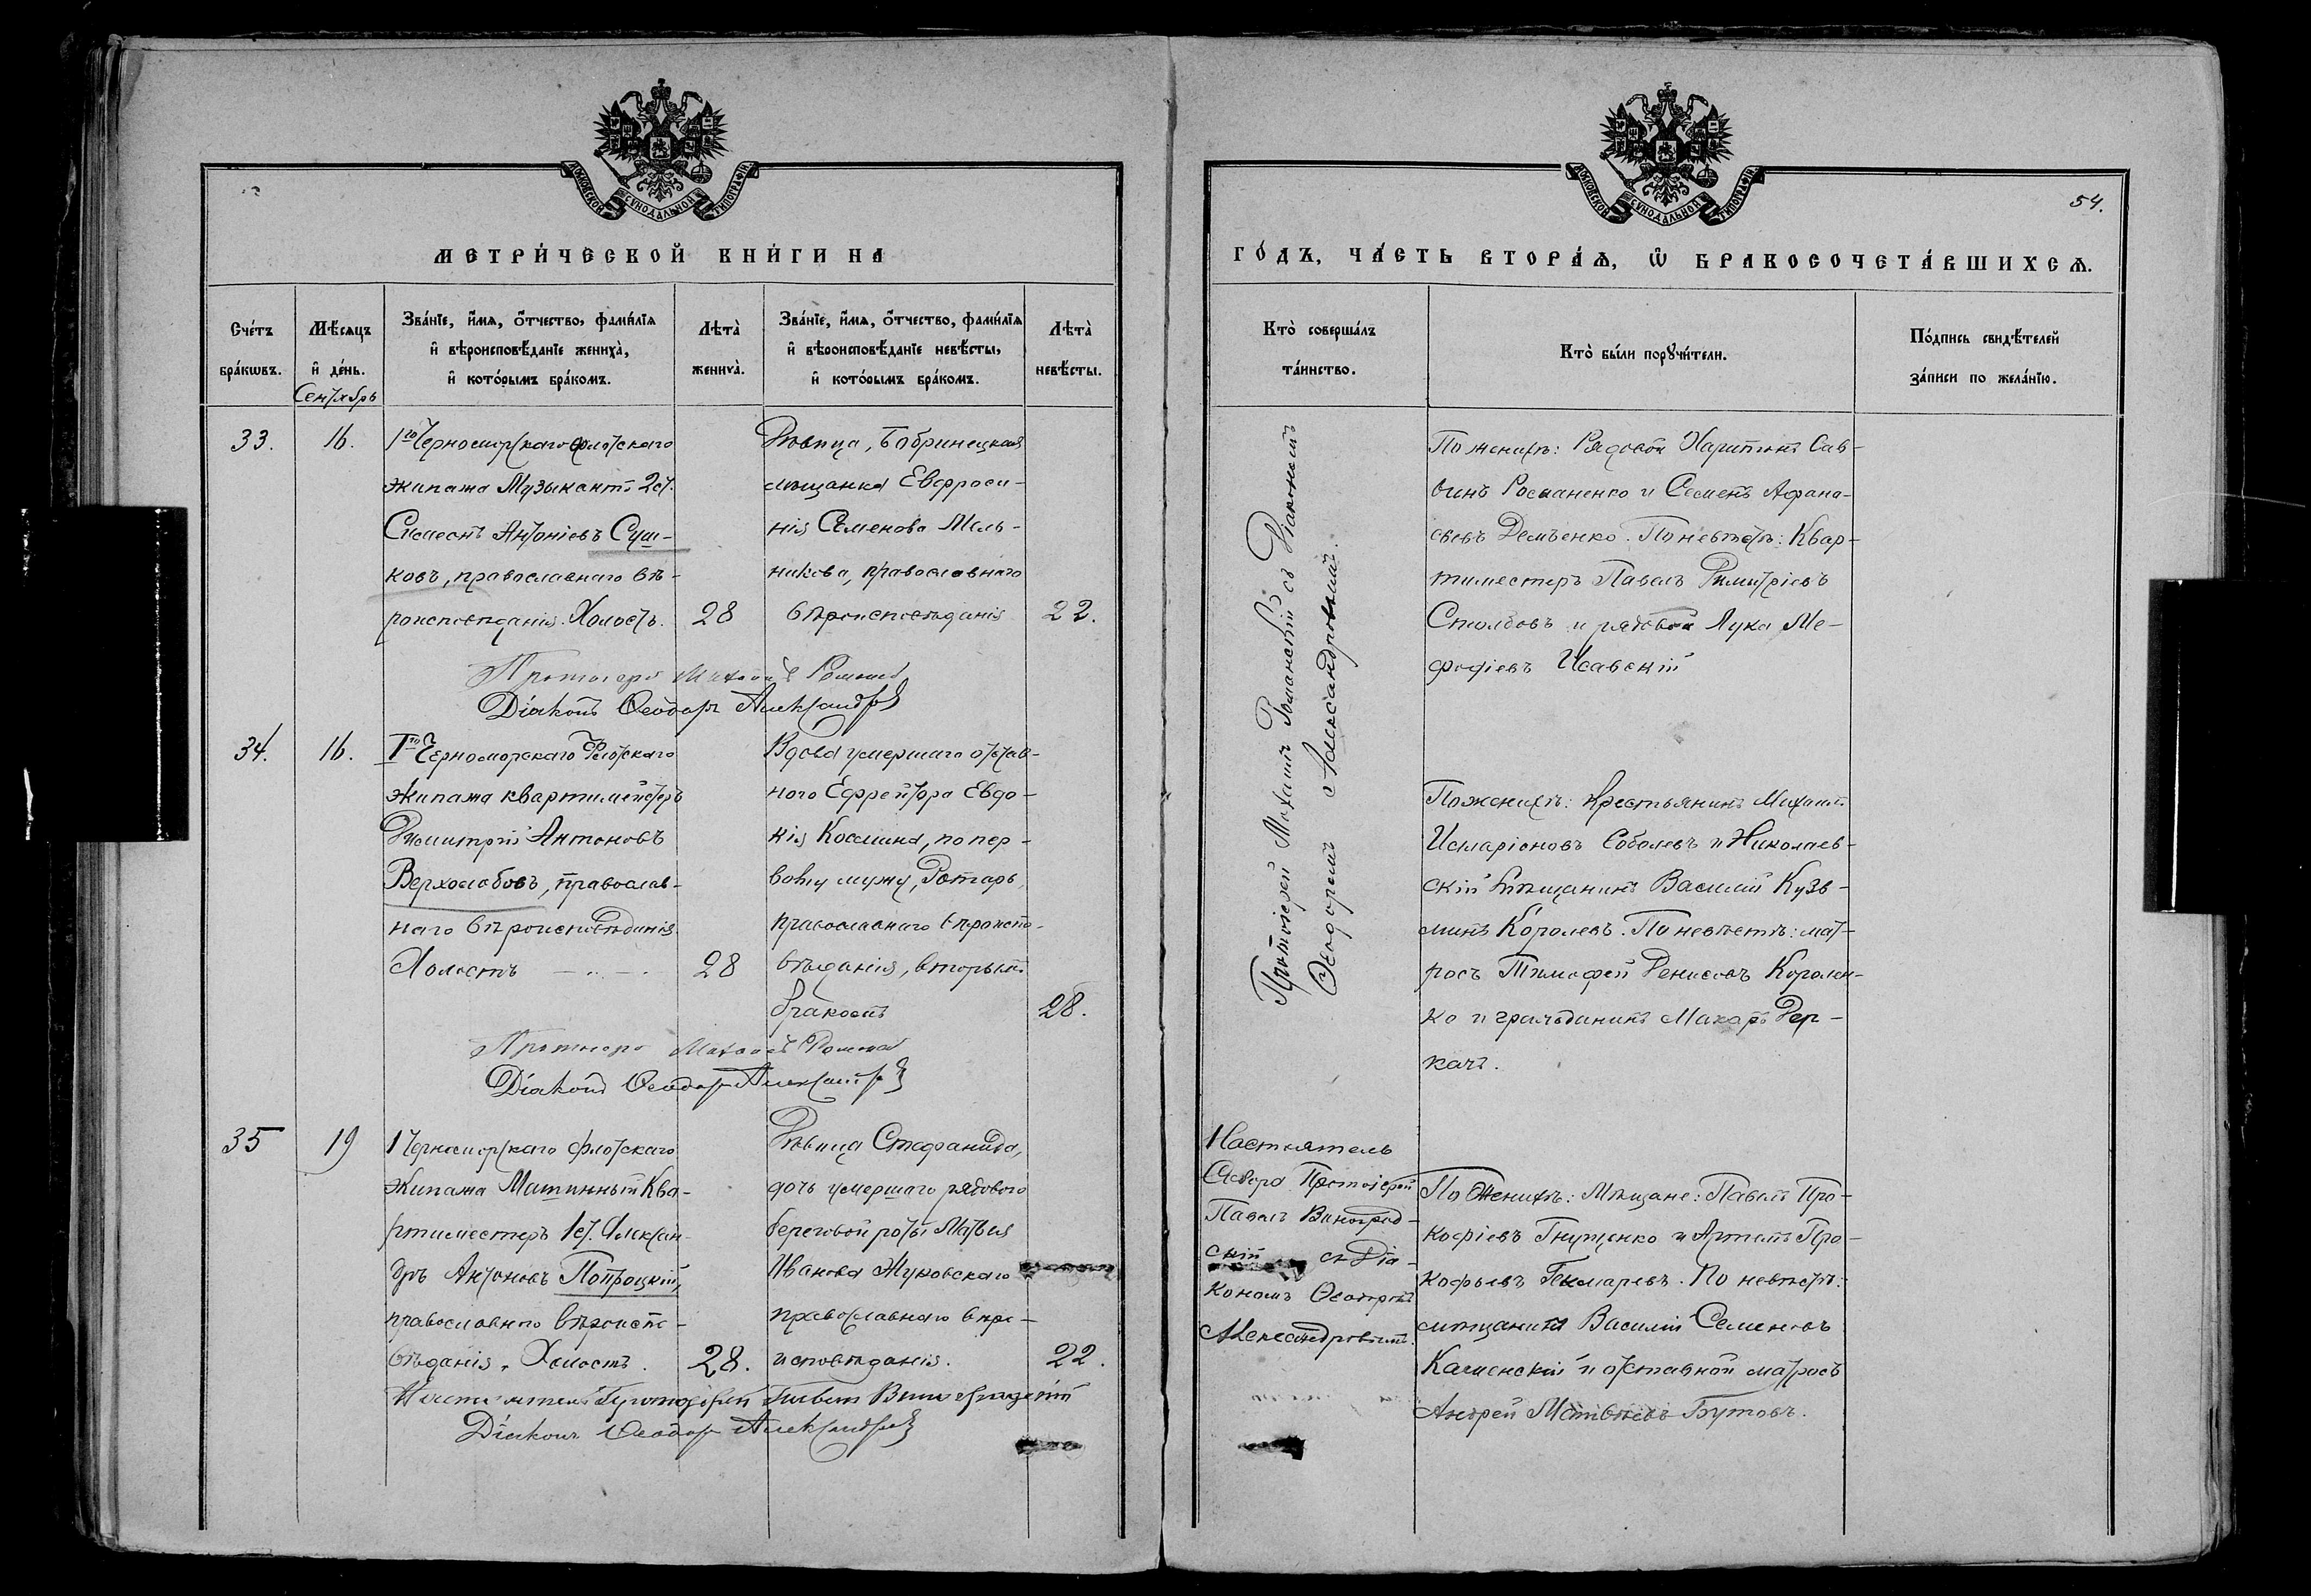 МОСКОВСКОЙ СѴНОДАЛЬНОЙ ТИПОГРАФІИ
МЕТРИ́ЧЕСКОЙ КНИ́ГИ НА
Сче́тъ бра́кѡвъ.
Мѣ́сѧцъ и҆ де́нь.
Сентябрь
Зва́нїе, и҆́мѧ, ѻ҆́тчество, фами́лїѧ
и҆ вѣроисповѣ́данїе жениха̀,
и҆ кото́рымъ бра́комъ.
Лѣта̀ жениха̀.
Зва́нїе, и҆́мѧ, ѻ҆́тчество, фами́лїѧ
и҆ вѣроисповѣ́данїе невѣ́сты,
и҆ кото́рымъ бра́комъ.
Лѣта̀ невѣ́сты.
33.
16.
1го Черноморскаго флотскаго
экипажа Музыкантъ 2 ст.
Симеонъ Антоніевъ Суш-
ковъ, православнаго вѣ-
роисповѣданія. Холостъ.
28
Дѣвица, Бобринецкая
мѣщанка Евфроси-
нія Семенова Мель-
никова, православнаго
вѣроисповѣданія
22.
Протоіерей Михаилъ
Діаконъ Ѳеодоръ Александров
34.
16.
1го Черноморскаго Флотскаго
экипажа квартимейстеръ
Димитрій Антоновъ
Верхослабовъ, православ-
наго вѣроисповѣданія
Холостъ
28
Вдова умершаго отстав-
ного Ефрейтора Евдо-
кія Космина, по пер-
вому мужу, Ротарь,
православнаго вѣроиспо-
вѣданія, вторымъ
бракомъ
28.
Протоіерей Михаилъ
Діаконъ Ѳеодоръ Александров
35
19
1 Черноморскаго флотскаго
экипажа Машинный Ква-
ртимместеръ 1 ст. Алексан-
дръ Антоновъ Попроцкій,
православнаго вѣроиспо-
вѣданія. Холостъ.
28.
Дѣвица Стефанида,
дочь умершаго рядового
береговой роты Матвея
Иванова Жуковскаго
православнаго вѣро-
исповѣданія.
22.
Настоятель Протоіерей Павелъ Виноградскій
Діаконъ Ѳеодоръ Александров
МОСКОВСКОЙ СѴНОДАЛЬНОЙ ТИПОГРАФІИ
54.
ГО́ДЪ, ЧА́СТЬ ВТОРА́Ѧ, Ѡ҆ БРАКОСОЧЕТА́ВШИХСѦ.
Кто̀ соверша́лъ
та́инство.
Кто̀ бы́ли порꙋчи́тели.
По́дпись свидѣ́телей
за́писи по жела́нїю.
Протоіерей Михаилъ Романскій съ Діакономъ
Ѳеодоромъ Александровымъ.
По женихѣ: Рядовой Харитонъ Сав-
винъ Романенко и Семенъ Афана-
сьевъ Демьенко. По невѣстѣ: Квар-
тимместеръ Павелъ Димитріевъ
Столбовъ и рядовой Лука Ме-
фодіевъ Исавскій
По женихѣ: Крестьянинъ Михаилъ
Иларіоновъ Соболевъ и Николаев-
скій мѣщанинъ Василій Кузь-
минъ Королевъ. По невѣстѣ: мат-
росъ Тимофей Денисовъ Королен-
ко и гражданинъ Макаръ Дер-
качъ.
Настоятель
Собора Протоіерей
Павелъ Виноград-
скій съ Діа-
кономъ Ѳеодоромъ
Александровымъ.
По Женихѣ: Мѣщане: Павелъ Про-
кофіевъ Гнущенко и Артемъ Про-
кофьевъ. По невѣстѣ:
мѣщанинъ Василій Семеновъ
Каменскій и отставной матросъ
Андрей Матвѣевъ Бутовъ.